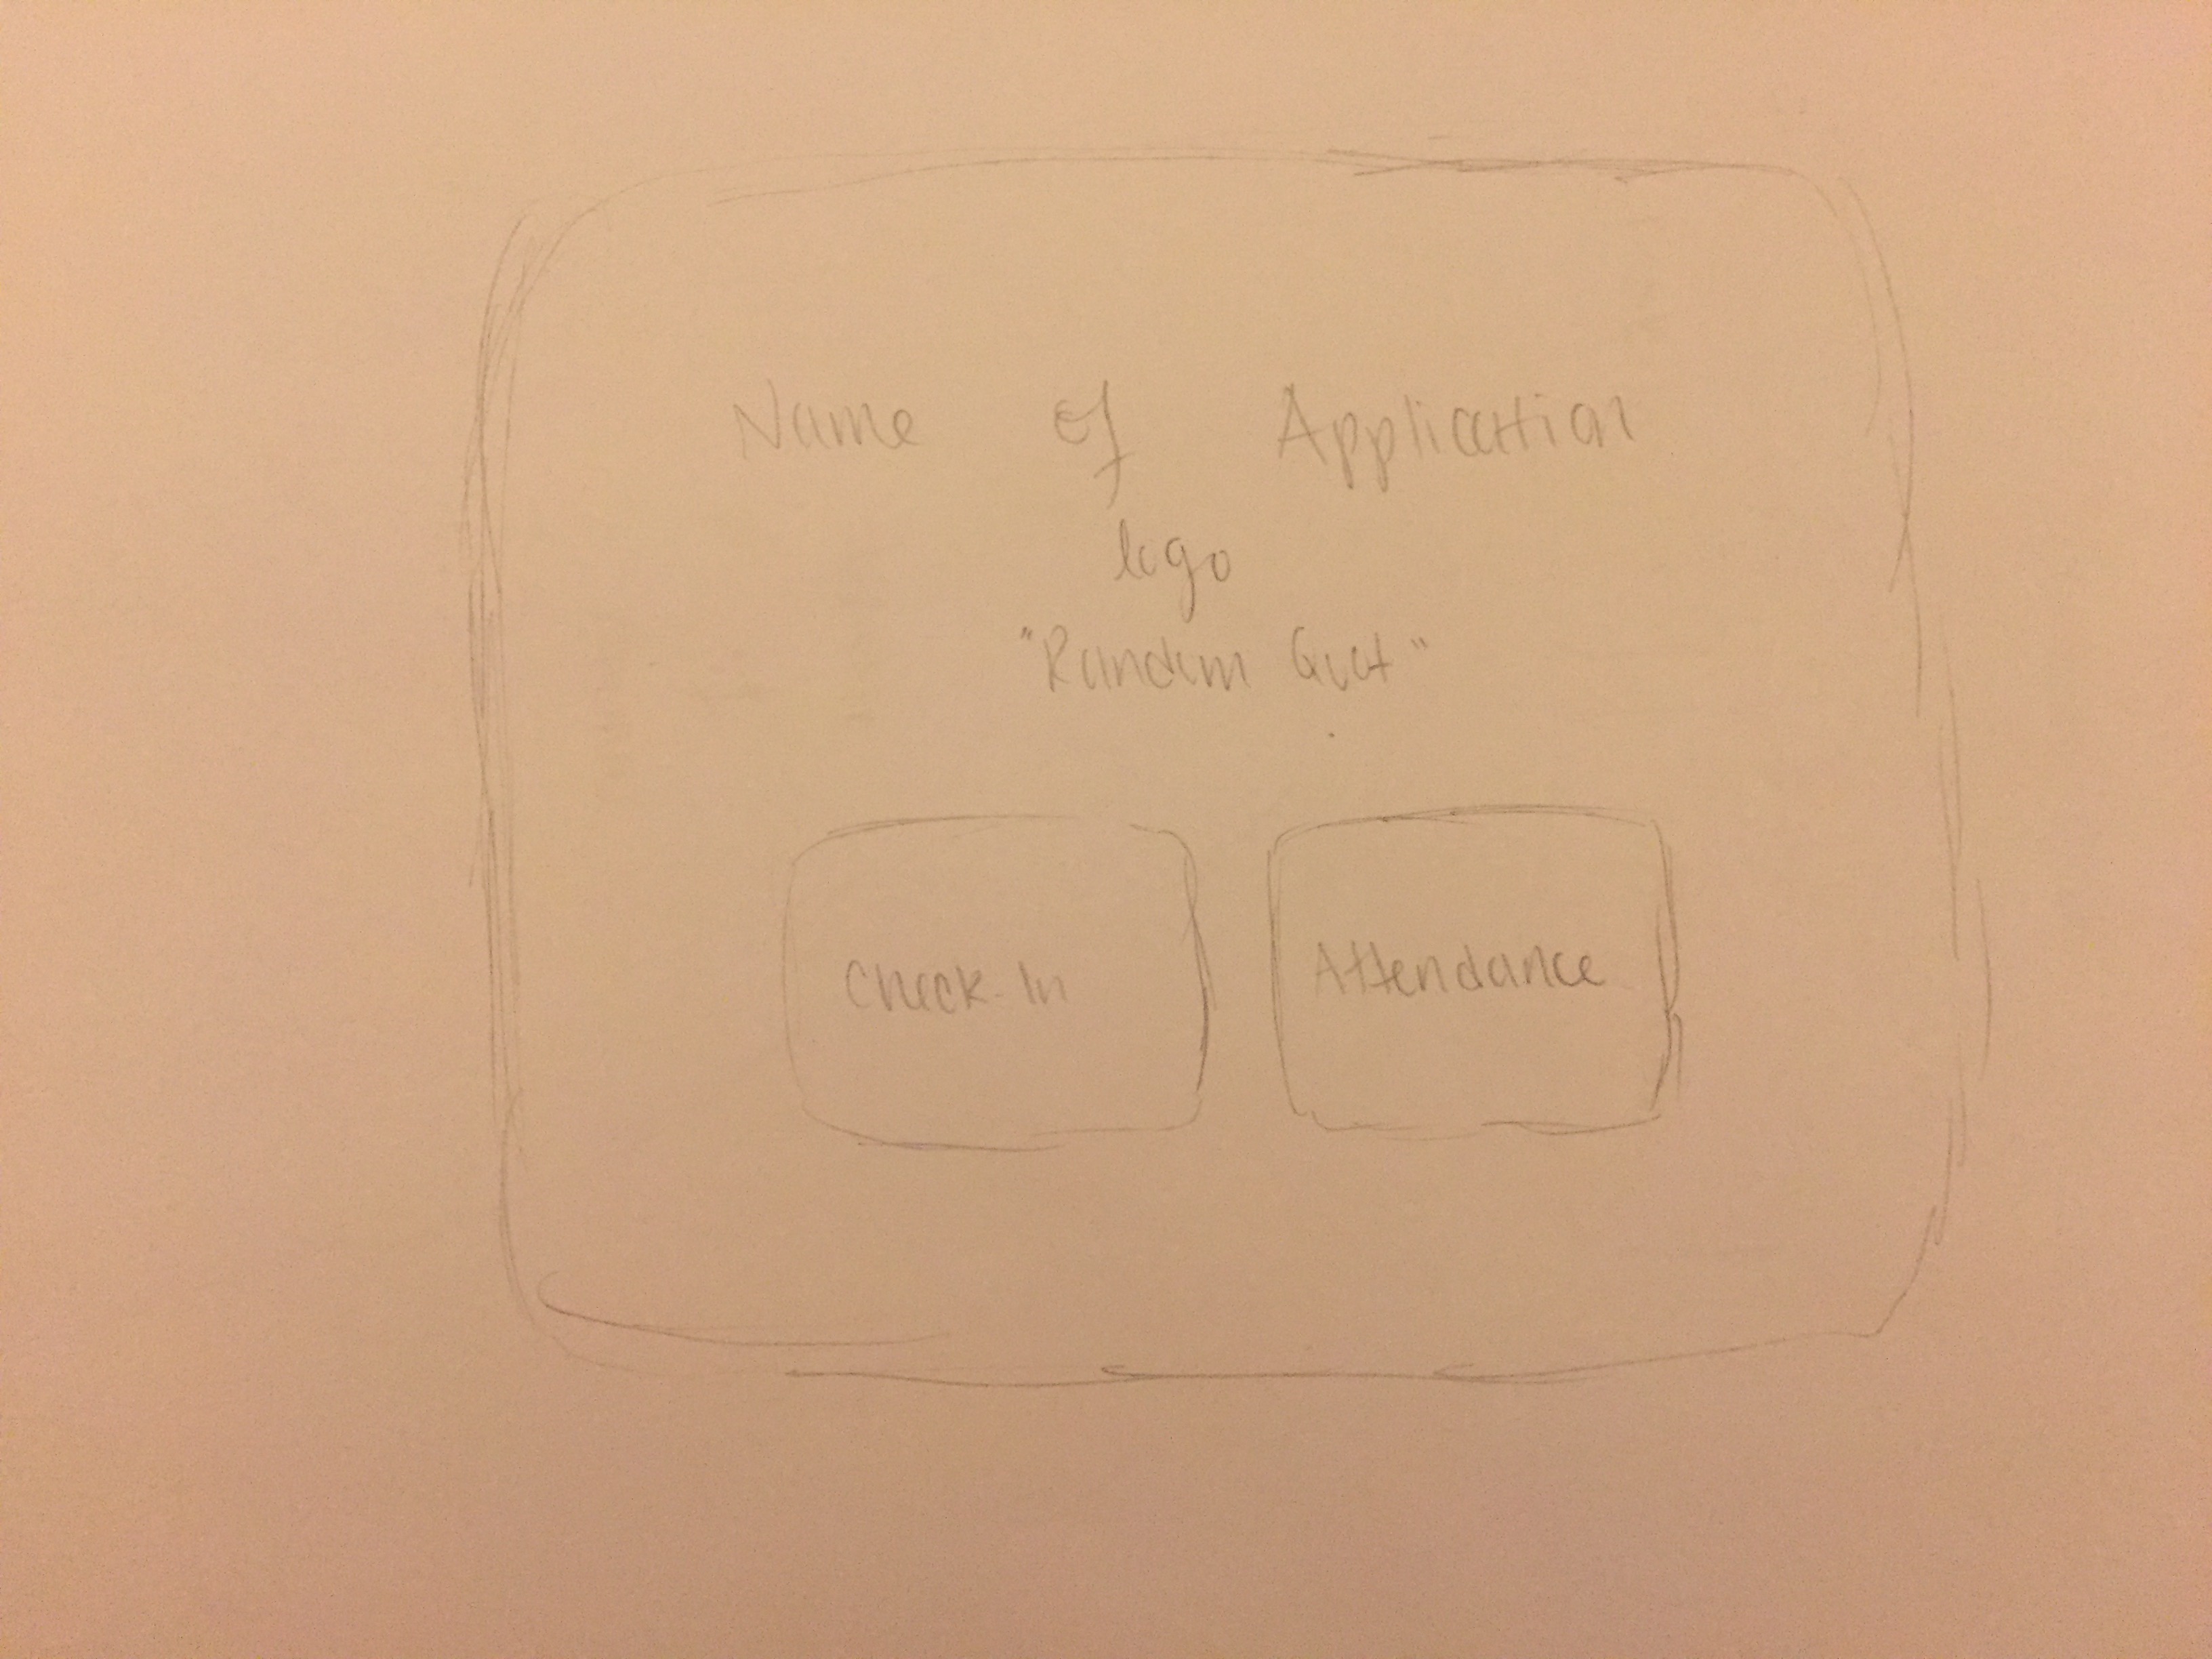 Name of Application
logo
"Random
Check-In
Attendance